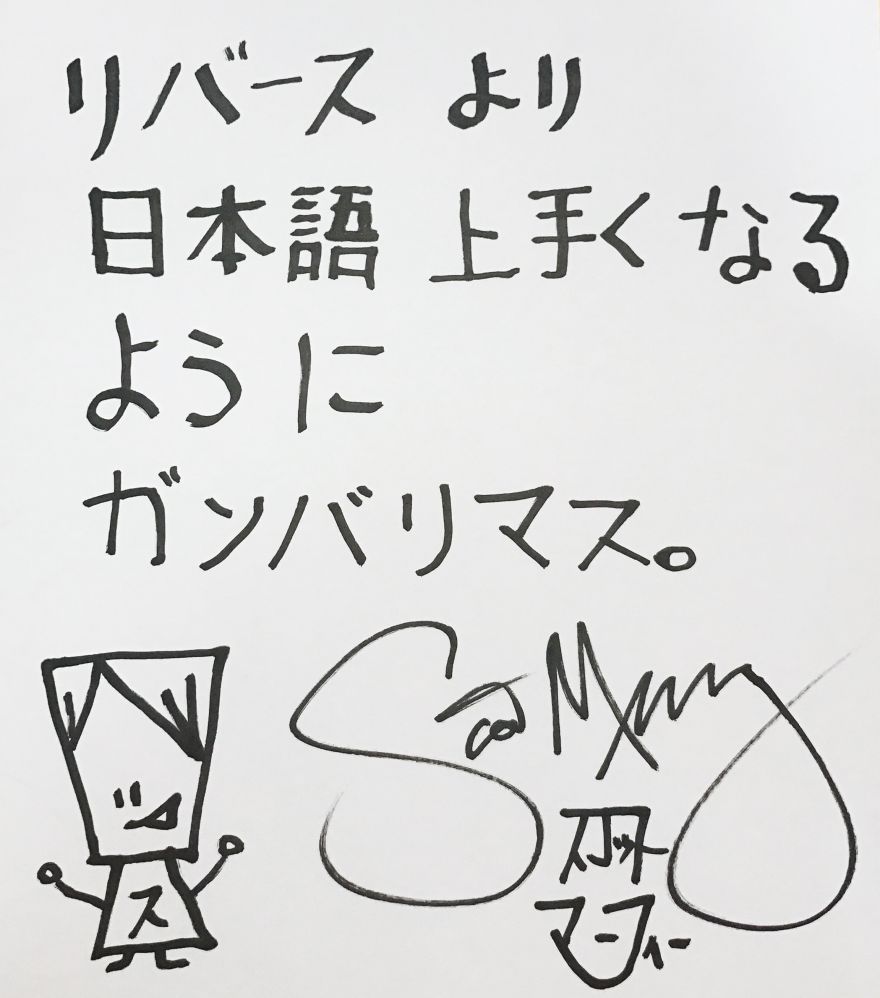 リバース より
日本語 上手く なる
ように
ガンバリマス。
ス
スコット
マーフィー